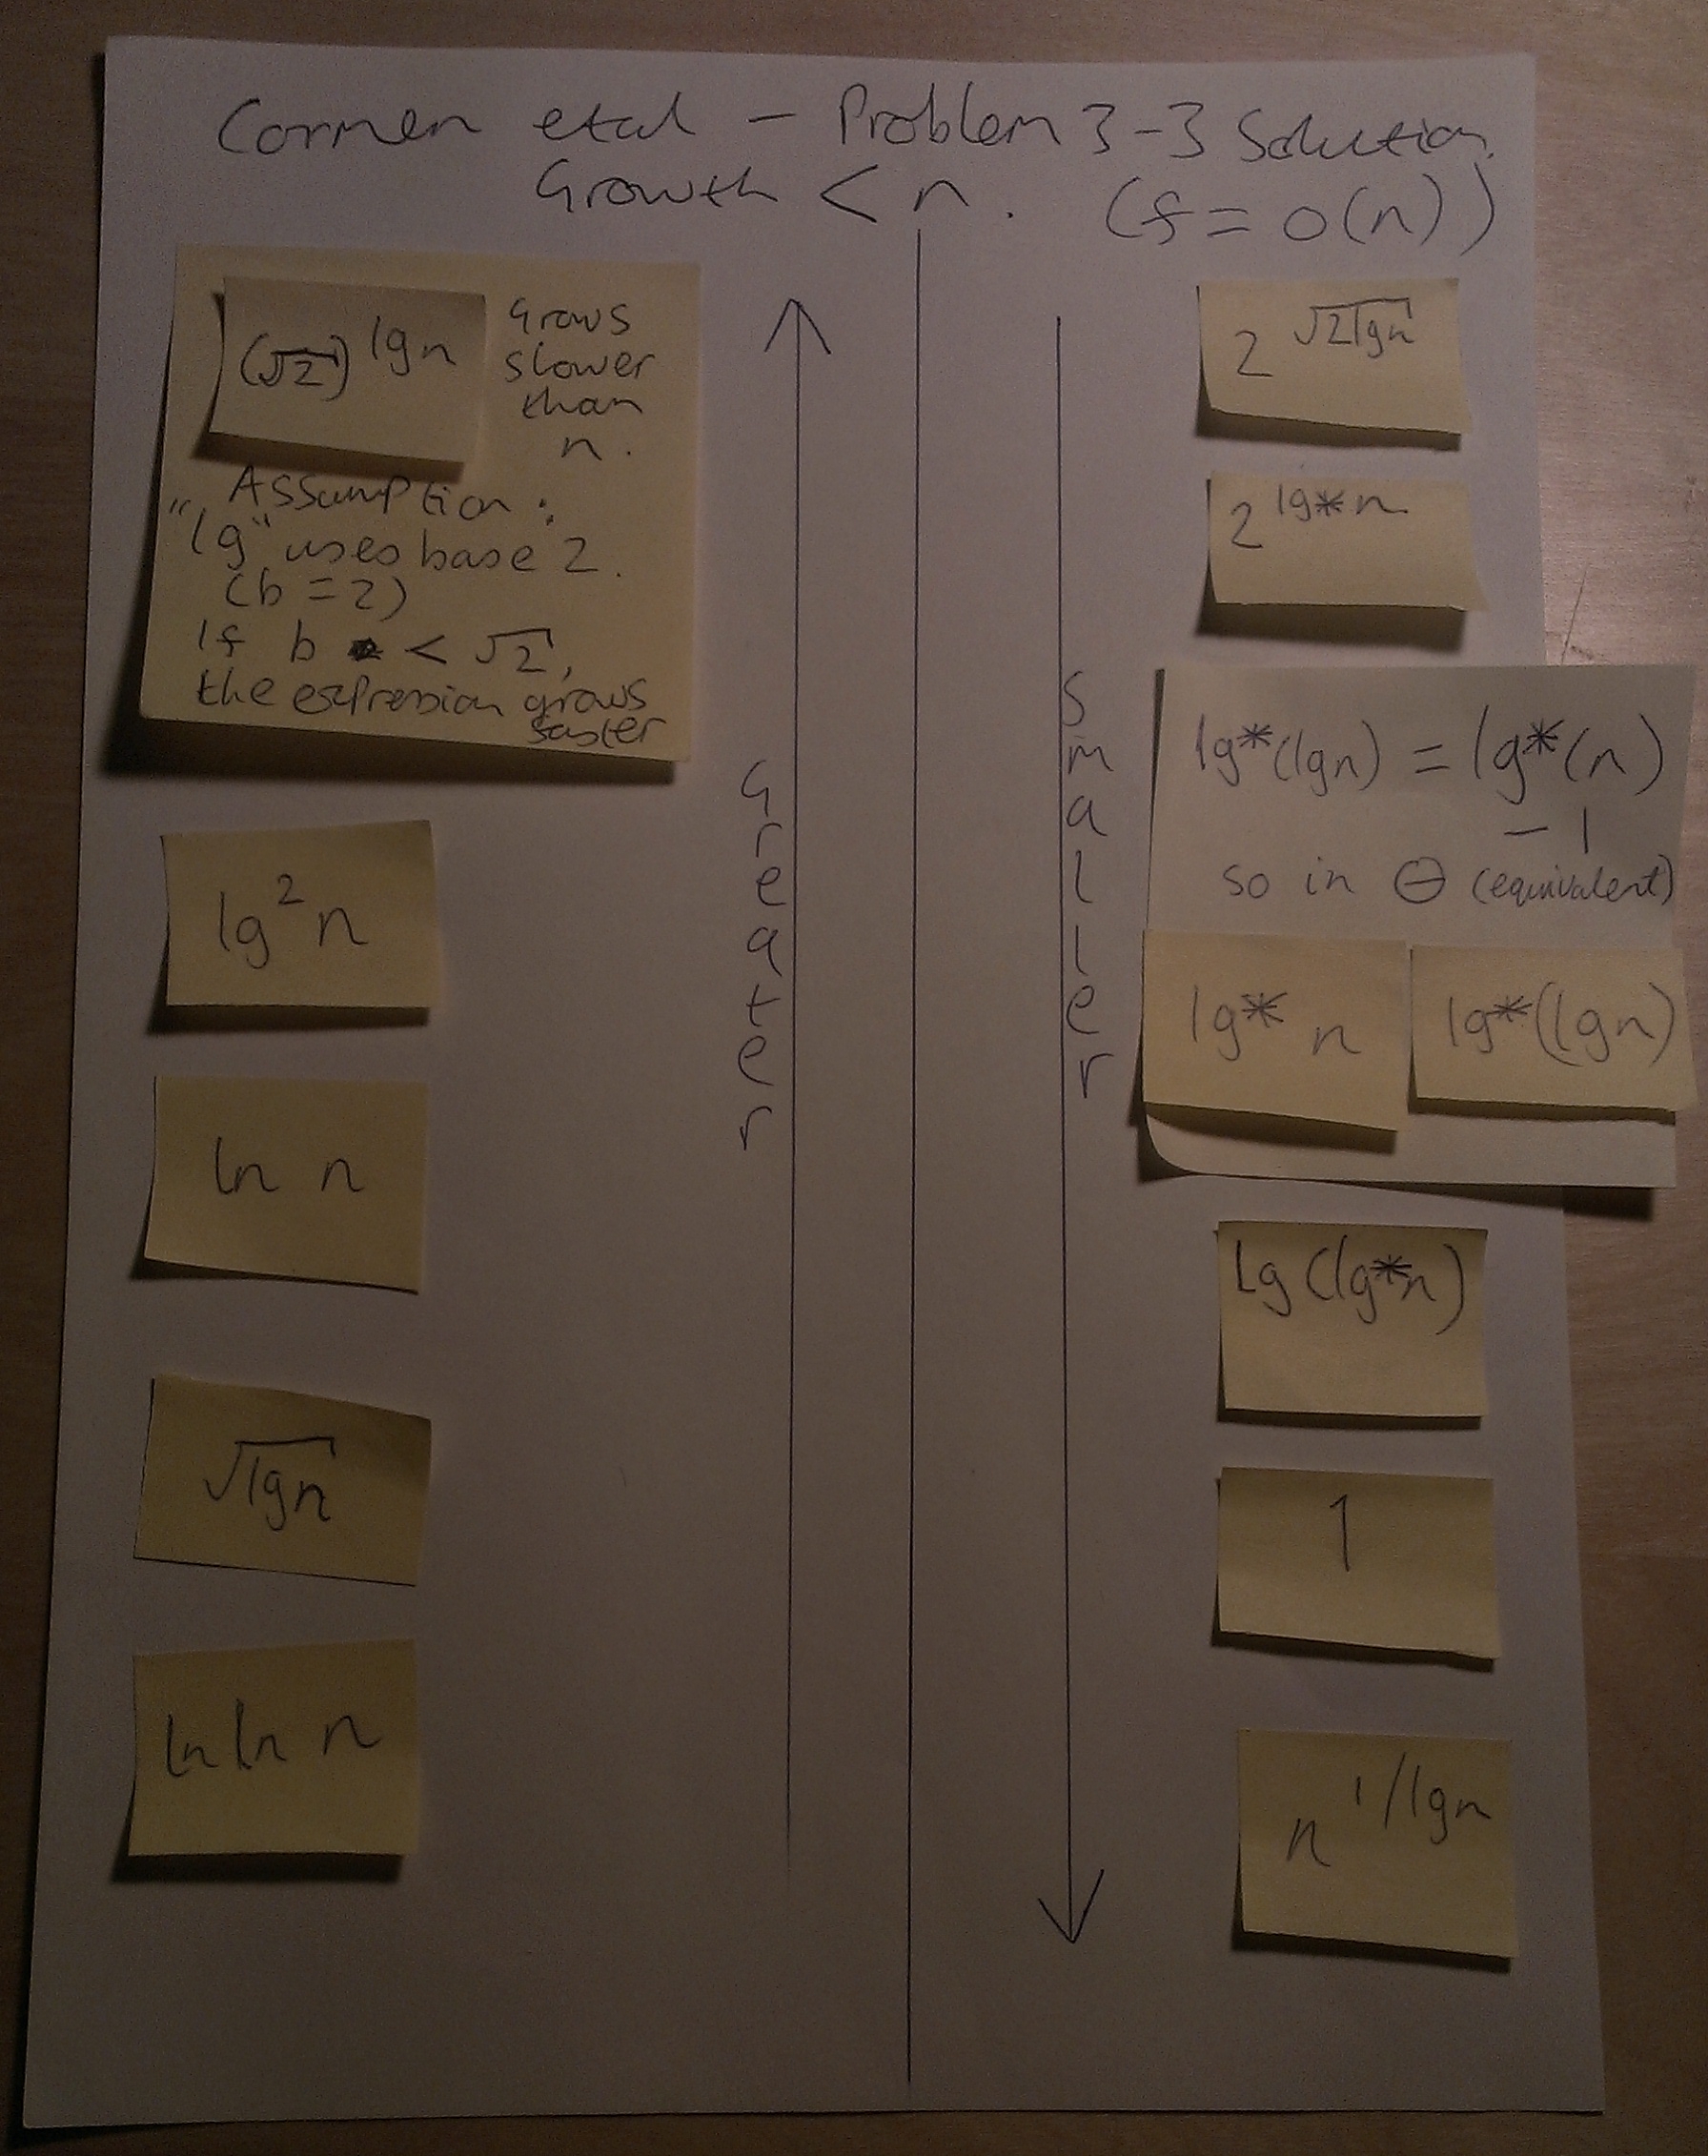 Cormen et al - Problem 3-3 Solution.
Growth < n. (f = o(n))
(√2)^lg n
Grows
slower
than
n.
Assumption:
"lg" uses base 2.
(b = 2)
If b < √2,
the expression grows
faster
lg² n
ln n
√lg n
ln ln n
Greater
Smaller
2^√2lg n
2^lg* n
lg*(lg n) = lg*(n)
- 1
so in Θ (equivalent)
lg* n
lg*(lg n)
Lg(lg* n)
1
n^1/lg n